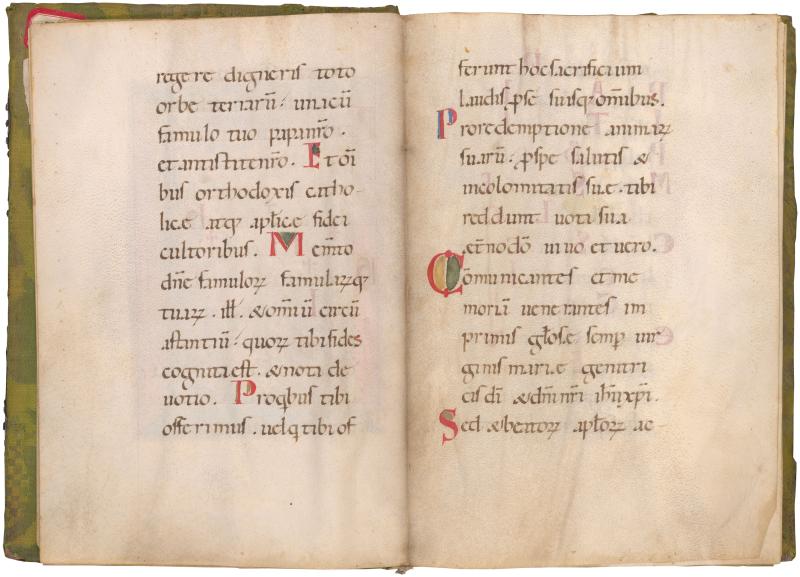 regere digneris toto
orbe terrarū. unacū
famulo tuo papanr̄o.
et antistitenr̄o. Et oī
bus orthodoxis catho-
licę atq; aplicę fidei
cultoribus. Mem̄to
dn̄e famuloꝝ famulaꝝq;
tuaꝝ. ill̄. &om̄iū circū
astantiū. quoꝝ tibi fides
cognita est. &nota de
uotio. Proq̄bus tibi
offerimus. uelq̄ tibi of
ferunt hoc sacrificium
laudis. ꝓse suisq; om̄ibus.
Pro redemptione animaꝝ
suarū. ꝓspe salutis &
incolomitatis suę. tibi
reddunt uota sua
ęt̄no dō uiuo et uero.
Cōmunicantes et me
moriā uenerantes im
primis gl̄osę semp̄ uir
ginis marię genitri
cis dī &dn̄i nr̄i ih̄u xp̄i.
Sed &beatoꝝ apl̄oꝝ ac